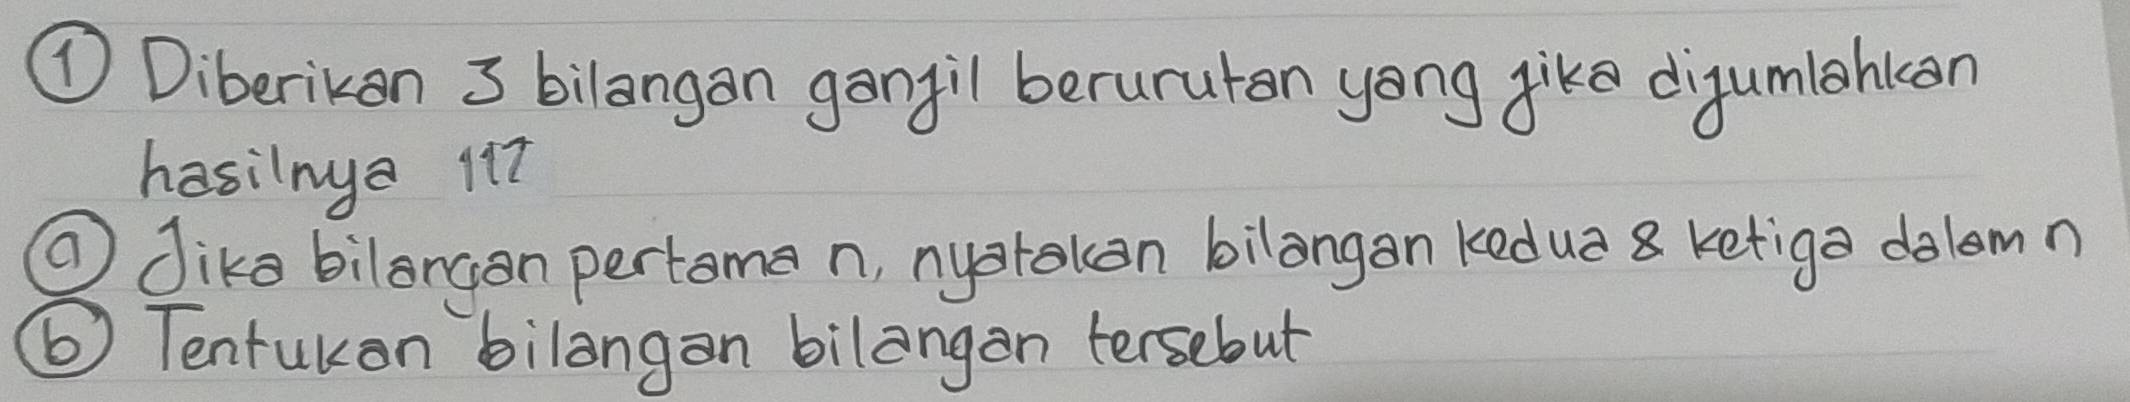 ① Diberikan 3 bilangan ganjil berurutan yang jika dijumlahkan
hasilnya 117
ⓐ Jika bilangan pertama n, nyatakan bilangan kedua & ketiga dalam n
ⓑ Tentukan bilangan bilangan tersebut